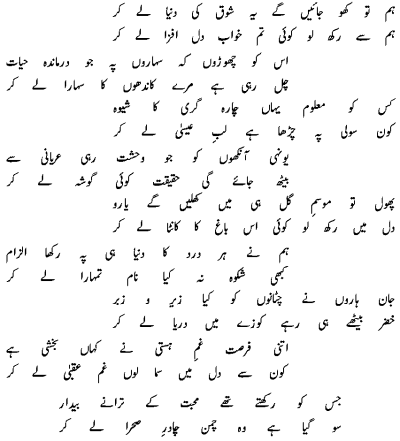 ہم تو کھو جائیں گے یہ شوق کی دنیا لے کر
ہم سے رکھ لو کوئی تم خواب دل افزا لے کر
اس کو چھوڑوں کہ سہاروں پہ جو درماندہ حیات
چل رہی ہے مرے کاندھوں کا سہارا لے کر
کس کو معلوم یہاں چارہ گری کا شیوہ
کون سولی پہ چڑھا ہے لبِ عیسیٰ لے کر
یونہی آنکھوں کو جو وحشت رہی عریانی سے
بیٹھ جائے گی حقیقت کوئی گوشہ لے کر
پھول تو موسمِ گل ہی میں کھلیں گے یارو
دل میں رکھ لو کوئی اس باغ کا کانٹا لے کر
ہم نے ہر درد کا دنیا ہی پہ رکھا الزام
کبھی شکوہ نہ کیا نام تمہارا لے کر
جان ہاروں نے چٹانوں کو کیا زیر و زبر
خضر بیٹھے ہی رہے کوزے میں دریا لے کر
اتنی فرصت غمِ ہستی نے کہاں بخشی ہے
کون سے دل میں سما لوں غم عقبیٰ لے کر
جس کو رکھتے تھے محبت کے ترانے بیدار
سو گیا ہے وہ چمن چادرِ صحرا لے کر